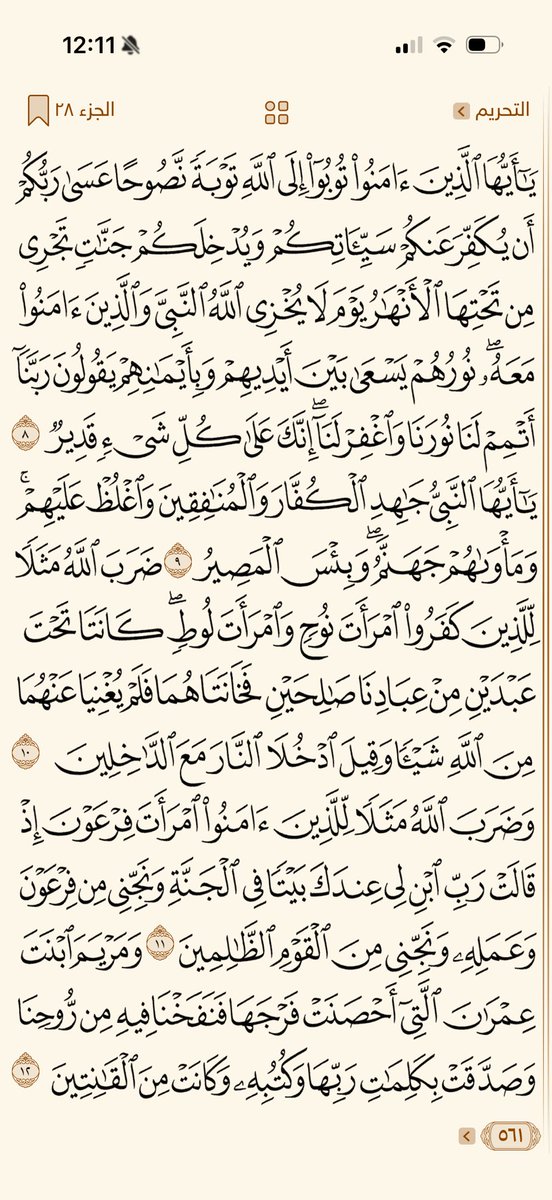 12:11
التحريم
الجزء ٢٨
يَـٰٓأَيُّهَا ٱلَّذِينَ ءَامَنُوا۟ تُوبُوٓا۟ إِلَى ٱللَّهِ تَوْبَةً نَّصُوحًا عَسَىٰ رَبُّكُمْ
أَن يُكَفِّرَ عَنكُمْ سَيِّـَٔاتِكُمْ وَيُدْخِلَكُمْ جَنَّـٰتٍ تَجْرِى
مِن تَحْتِهَا ٱلْأَنْهَـٰرُ يَوْمَ لَا يُخْزِى ٱللَّهُ ٱلنَّبِىَّ وَٱلَّذِينَ ءَامَنُوا۟
مَعَهُۥ ۖ نُورُهُمْ يَسْعَىٰ بَيْنَ أَيْدِيهِمْ وَبِأَيْمَـٰنِهِمْ يَقُولُونَ رَبَّنَآ
أَتْمِمْ لَنَا نُورَنَا وَٱغْفِرْ لَنَآ ۖ إِنَّكَ عَلَىٰ كُلِّ شَىْءٍ قَدِيرٌ ٨
يَـٰٓأَيُّهَا ٱلنَّبِىُّ جَـٰهِدِ ٱلْكُفَّارَ وَٱلْمُنَـٰفِقِينَ وَٱغْلُظْ عَلَيْهِمْ ۚ
وَمَأْوَىٰهُمْ جَهَنَّمُ ۖ وَبِئْسَ ٱلْمَصِيرُ ٩ ضَرَبَ ٱللَّهُ مَثَلًا
لِّلَّذِينَ كَفَرُوا۟ ٱمْرَأَتَ نُوحٍ وَٱمْرَأَتَ لُوطٍ ۖ كَانَتَا تَحْتَ
عَبْدَيْنِ مِنْ عِبَادِنَا صَـٰلِحَيْنِ فَخَانَتَاهُمَا فَلَمْ يُغْنِيَا عَنْهُمَا
مِنَ ٱللَّهِ شَيْـًٔا وَقِيلَ ٱدْخُلَا ٱلنَّارَ مَعَ ٱلدَّٰخِلِينَ ١٠
وَضَرَبَ ٱللَّهُ مَثَلًا لِّلَّذِينَ ءَامَنُوا۟ ٱمْرَأَتَ فِرْعَوْنَ إِذْ
قَالَتْ رَبِّ ٱبْنِ لِى عِندَكَ بَيْتًا فِى ٱلْجَنَّةِ وَنَجِّنِى مِن فِرْعَوْنَ
وَعَمَلِهِۦ وَنَجِّنِى مِنَ ٱلْقَوْمِ ٱلظَّـٰلِمِينَ ١١ وَمَرْيَمَ ٱبْنَتَ
عِمْرَٰنَ ٱلَّتِىٓ أَحْصَنَتْ فَرْجَهَا فَنَفَخْنَا فِيهِ مِن رُّوحِنَا
وَصَدَّقَتْ بِكَلِمَـٰتِ رَبِّهَا وَكُتُبِهِۦ وَكَانَتْ مِنَ ٱلْقَـٰنِتِينَ ١٢
٥٦١